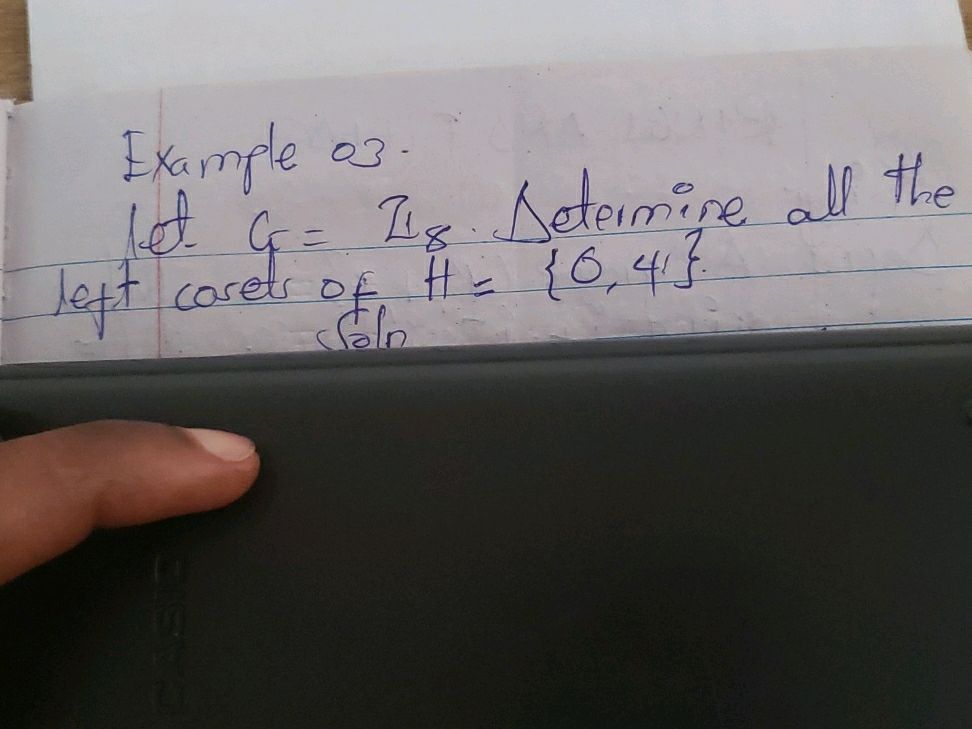 Example 03.
Let G = ℤ8. Determine all the
left cosets of H = {0, 4}.
Soln
CASIO